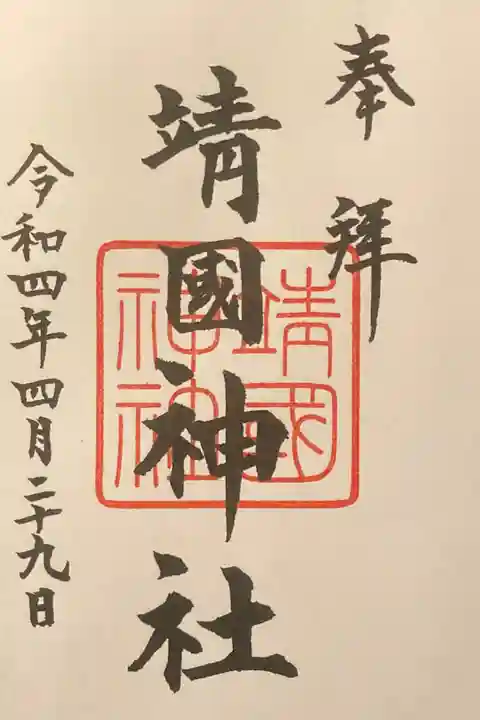 奉拜
靖國神社
靖国神社
令和四年四月二十九日